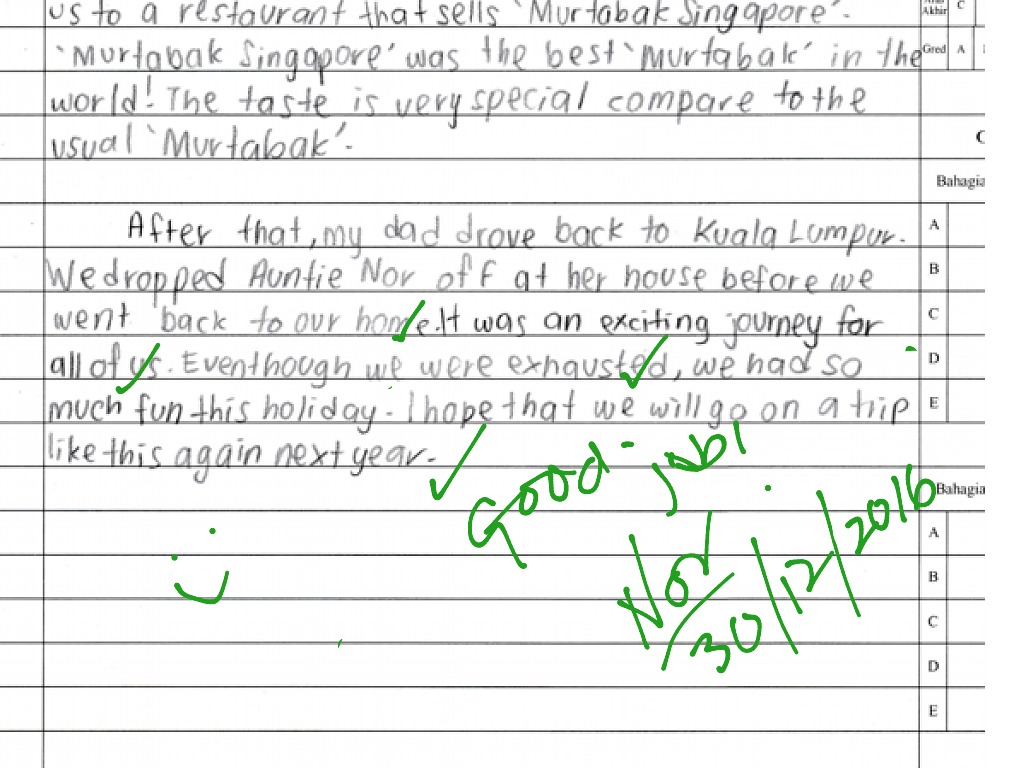 us to a restaurant that sells `Murtabak Singapore'.
`Murtabak Singapore' was the best `Murtabak' in the
world! The taste is very special compare to the
usual `Murtabak'.
After that, my dad drove back to Kuala Lumpur.
We dropped Auntie Nor off at her house before we
went back to our home. It was an exciting journey for
all of us. Eventhough we were exhausted, we had so
much fun this holiday. I hope that we will go on a trip
like this again next year.
Good job!
Nor
30/12/2016
Akhir C
Gred A
Bahagia
A
B
C
D
E
Bahagia
A
B
C
D
E